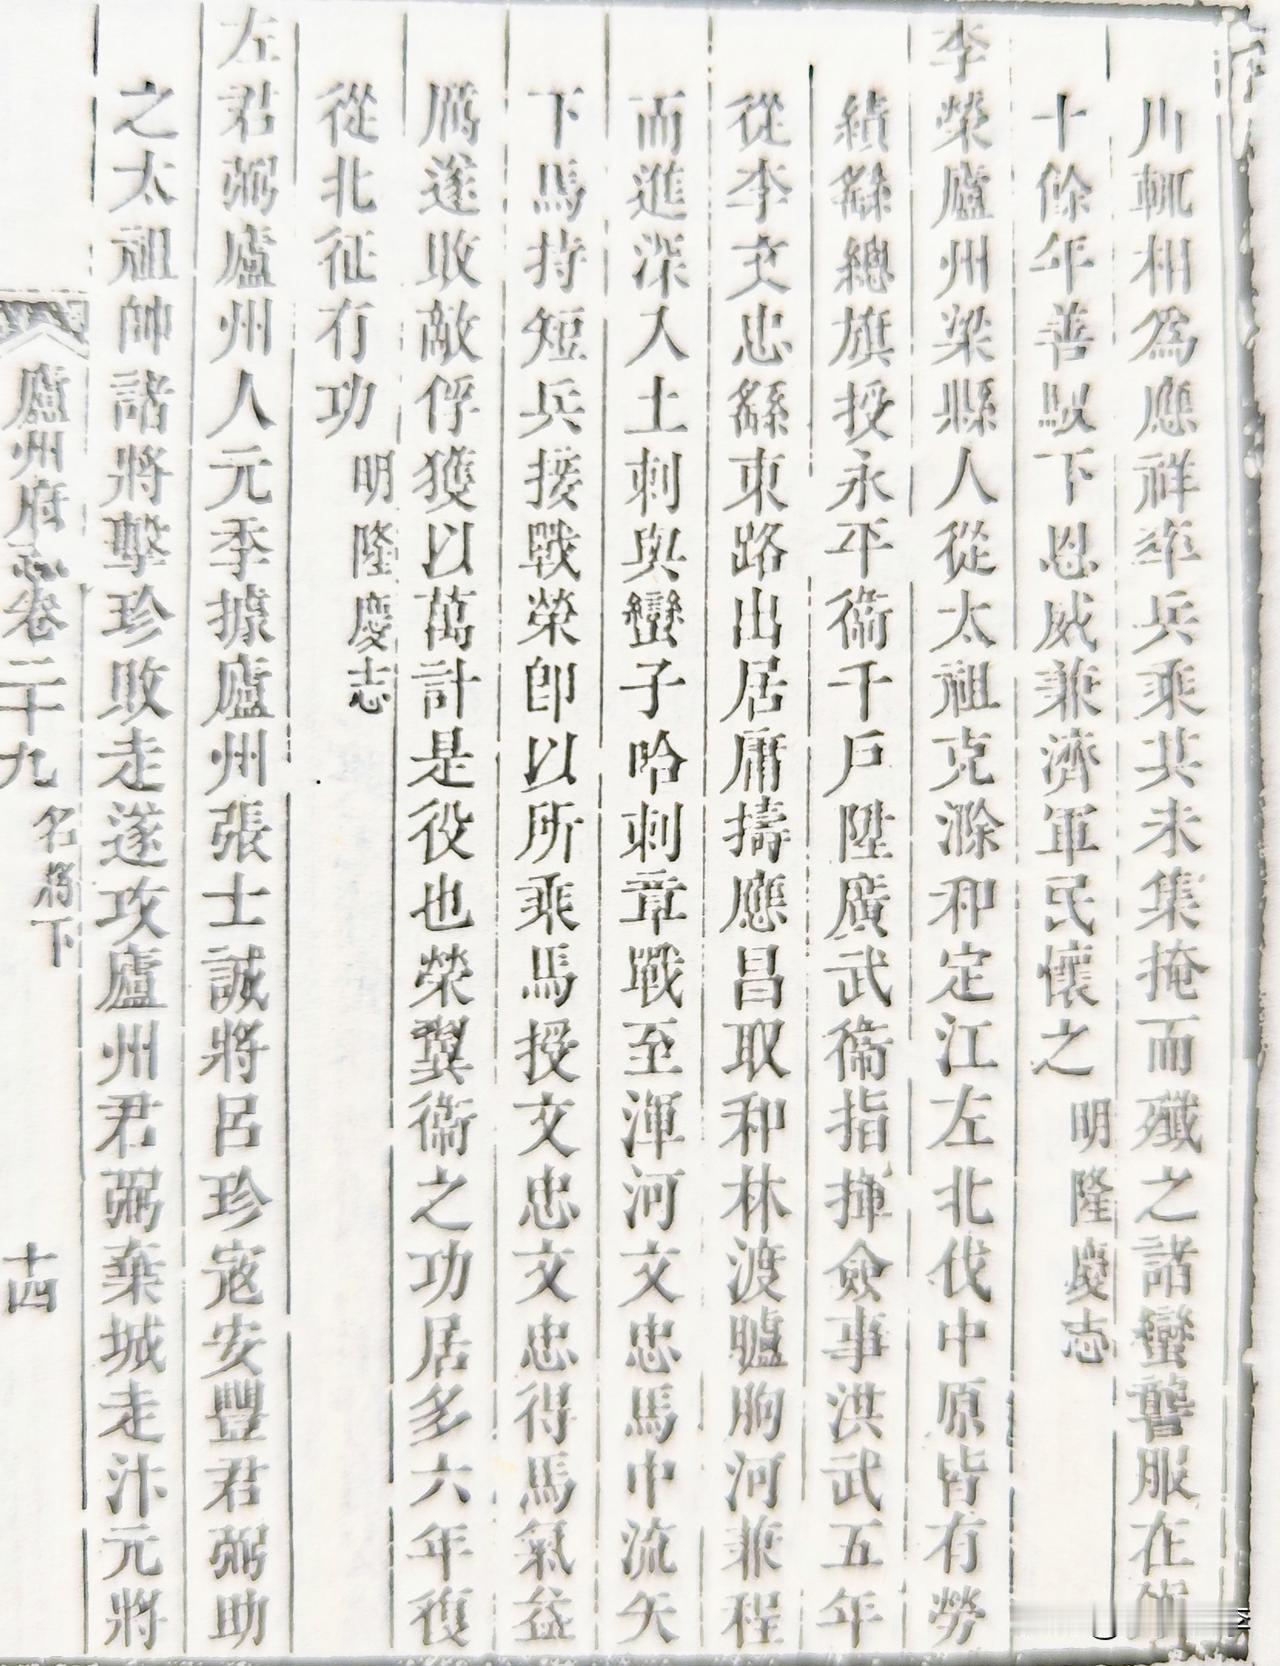 川輒相為應祥率兵乘其未集掩而殲之諸蠻讋服在衛
十餘年善馭下恩威兼濟軍民懷之明隆慶志
李榮廬州梁縣人從太祖克滁和定江左北伐中原皆有勞
績繇總旗授永平衞千戶陞廣武衞指揮僉事洪武五年
從李文忠繇東路出居庸擣應昌取和林渡臚朐河兼程
而進深入土剌與蠻子哈剌章戰至渾河文忠馬中流矢
下馬持短兵接戰榮即以所乘馬授文忠文忠得馬氣益
厲遂敗敵俘獲以萬計是役也榮翼衞之功居多六年復
從北征有功明隆慶志
左君弼廬州人元季據廬州張士誠將呂珍寇安豐君弼助
之太祖帥諸將擊珍敗走遂攻廬州君弼棄城走汴元將
廬州府志卷二十九 名將下 十四